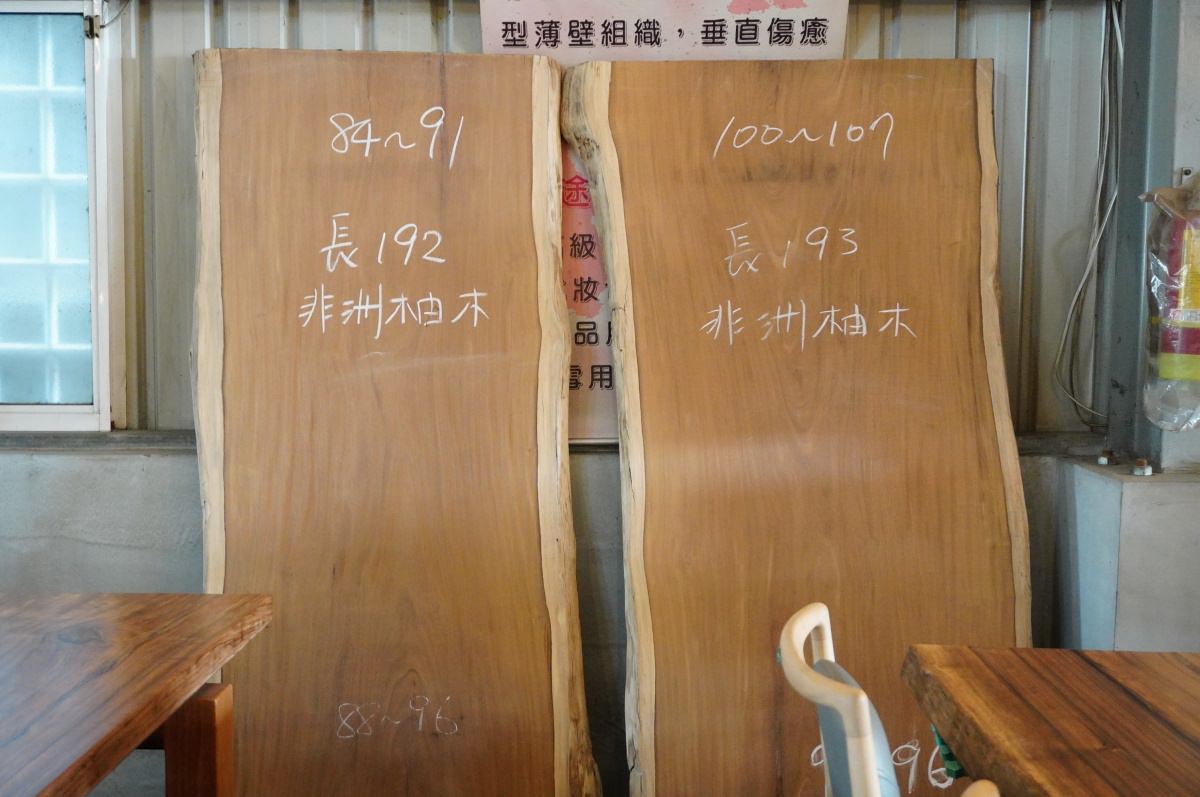 型薄壁組織，垂直傷癒
84~91
長192
非洲柚木
88~96
100~107
長193
非洲柚木
96
途
級
妝
品
用